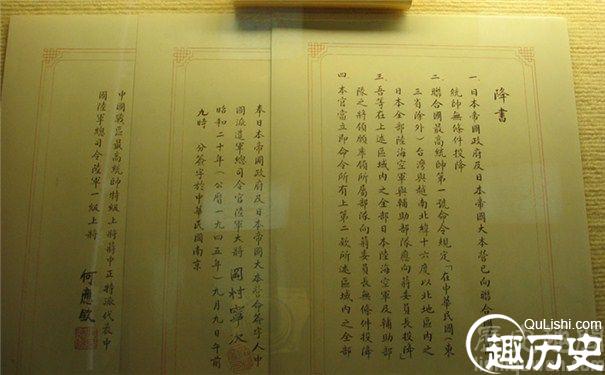 降書
一 日本帝國政府及日本帝國大本營已向聯合
統帥無條件投降
二 聯合國最高統帥第一號命令規定「在中華民國(東
三省除外)台灣與越南北緯十六度以北地區內之
日本全部陸海空軍與輔助部隊應向蔣委員長投降」
三 吾等在上述區域內之全部日本陸海空軍及輔助部
隊之將領願率領所屬部隊向蔣委員長無條件投降
四 本官當立即命令所有上第二款所述區域內之全部
奉日本帝國政府及日本帝國大本營命簽字人中
國派遣軍總司令官陸軍大將 岡村寧次
昭和二十年(公曆一九四五年)九月九日午前
九時 分簽字於中華民國南京
中國戰區最高統帥特級上將蔣中正特派代表中
國陸軍總司令陸軍一級上將
何應欽
QuLishi.com
趣历史